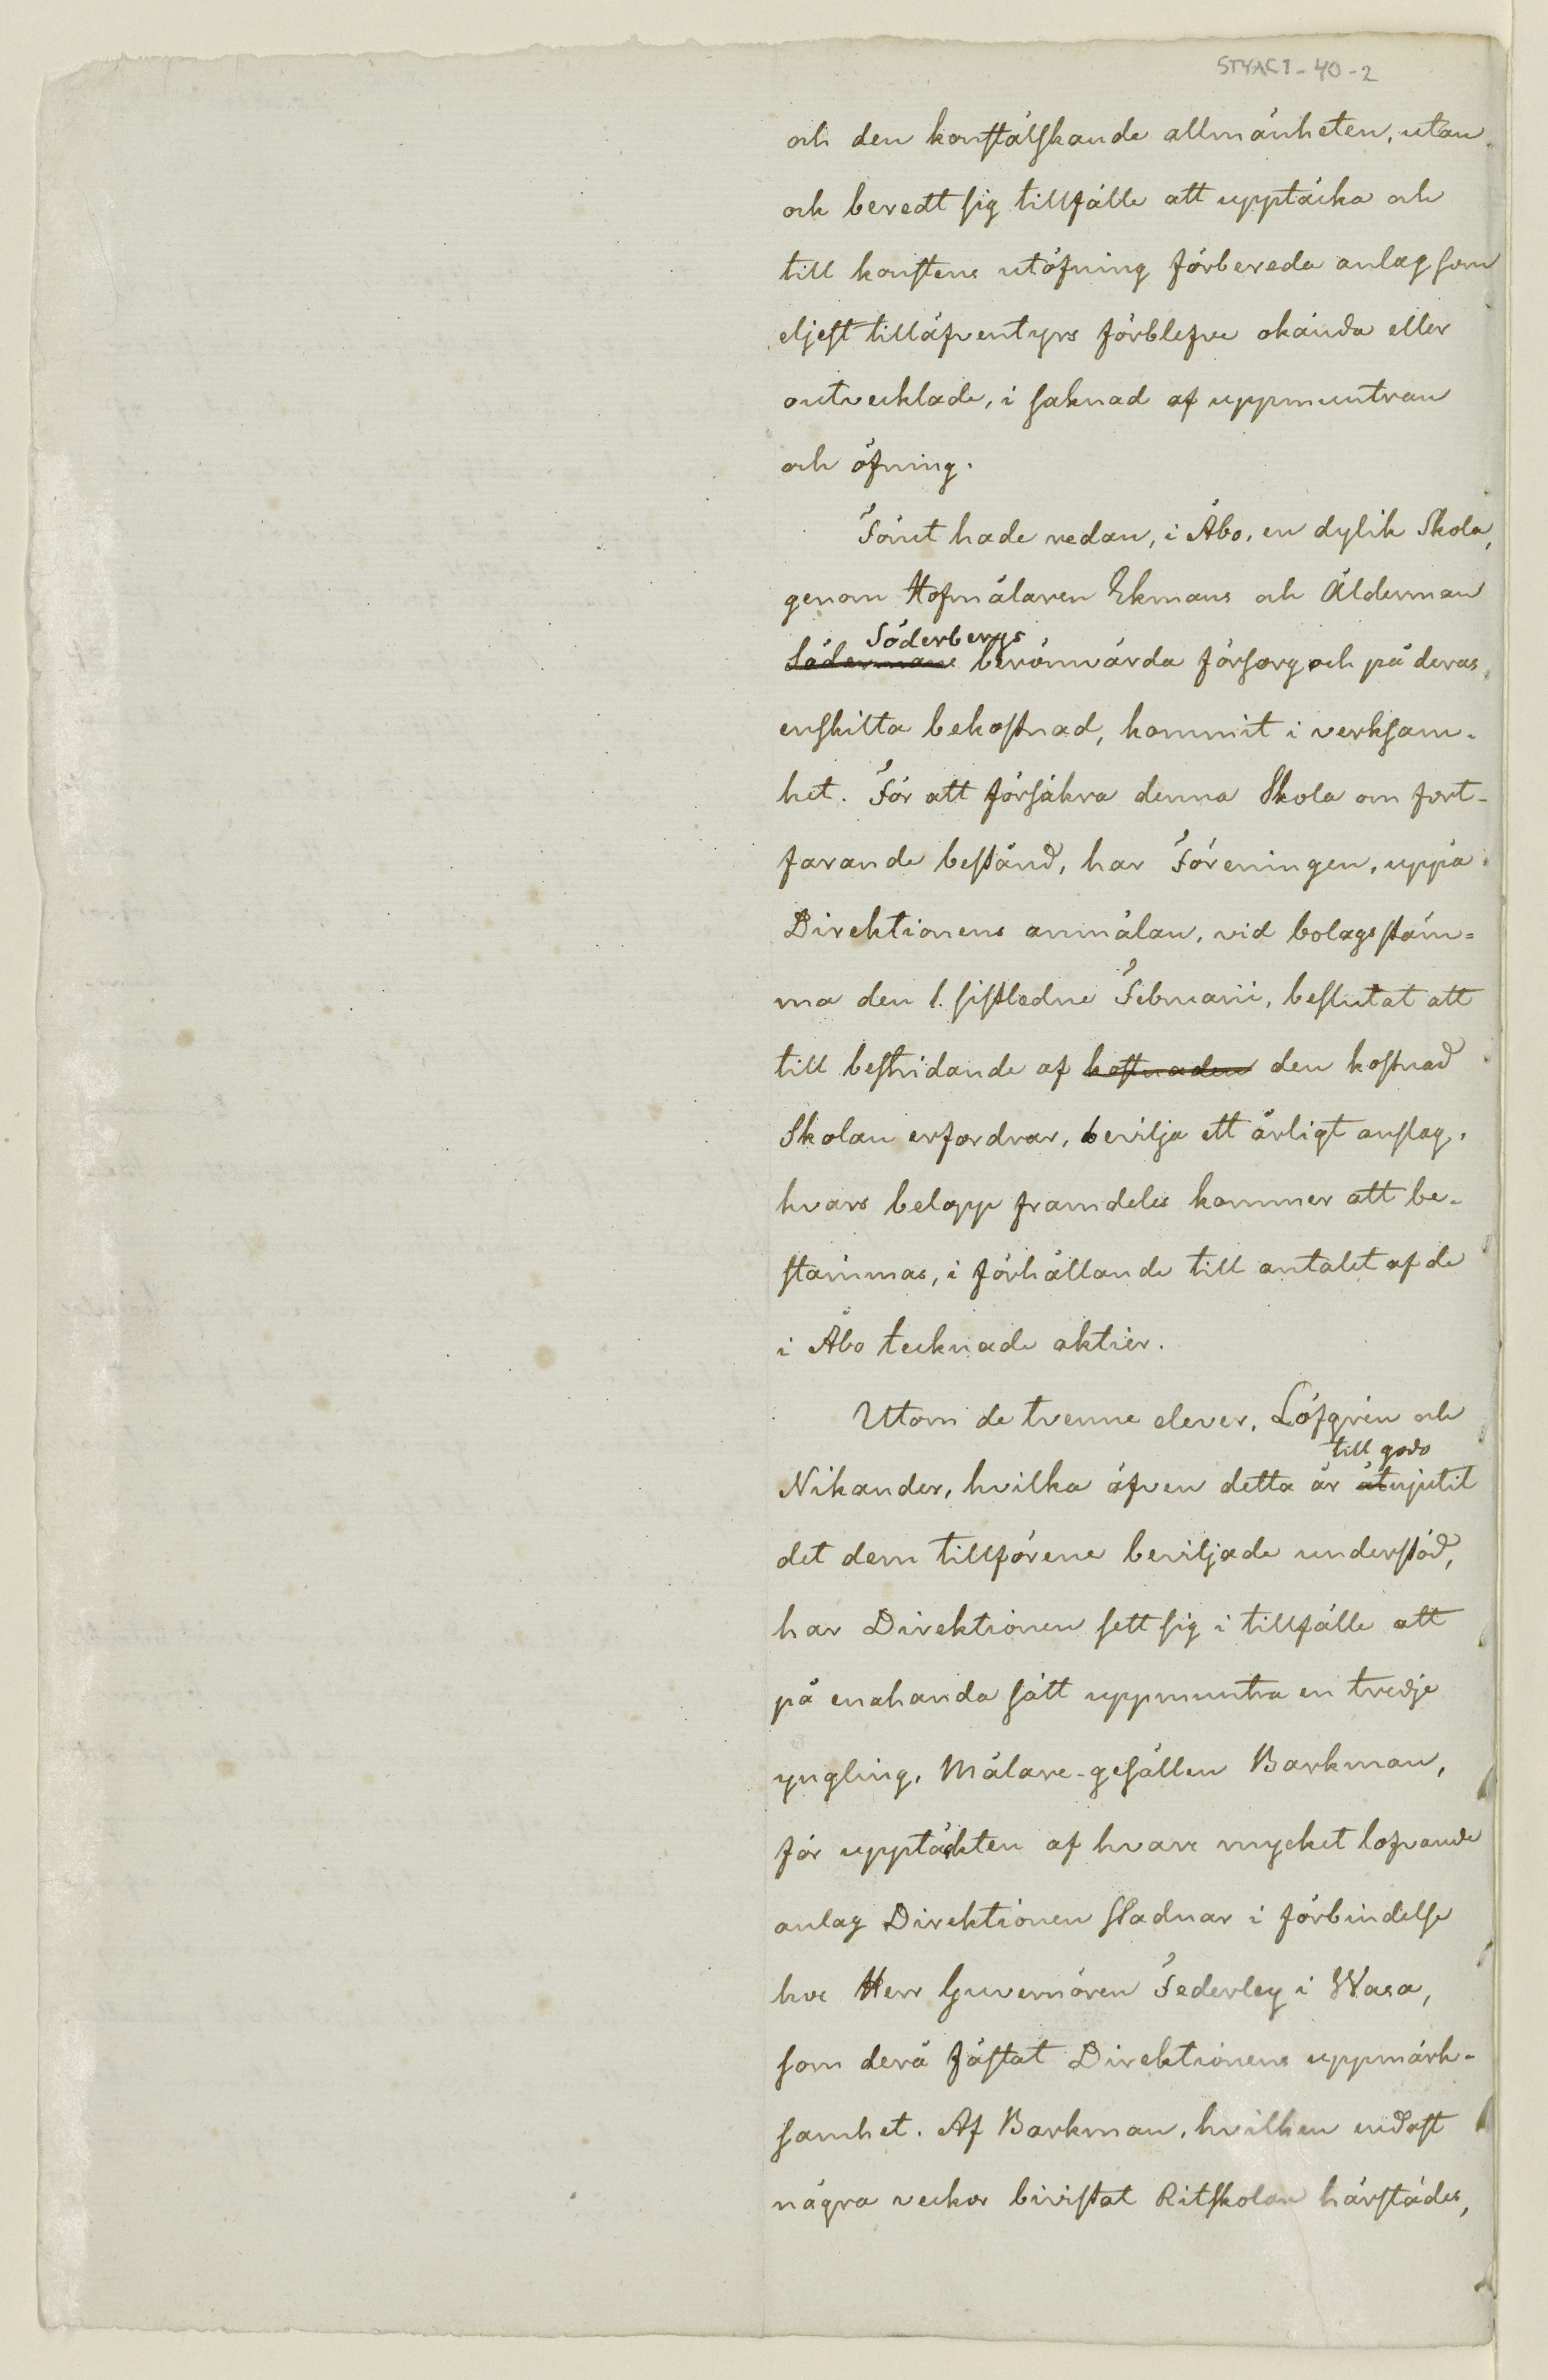 STYACI-40-2
och den konstälskande allmänheten, utan
ock beredt sig tillfälle att upptäcka och
till konstens utöfning förbereda anlag som
eljest tilläfventyrs förblefve okända eller
outvecklade, i saknad af uppmuntran
och öfning.
Förut hade redan, i Åbo, en dylik Skola,
genom Hofmålaren Ekmans och Ålderman
Söderbergs
Södermans berömvärda försorg och på deras
enskilta bekostnad, kommit i verksam-
het. För att försäkra denna Skola om fort-
farande bestånd, har Föreningen, uppå
Direktionens anmälan, vid bolagsstäm-
ma den 1. sistledne Februarii, beslutat att
till bestridande af kostnaden den kostnad
Skolan erfordrar, bevilja ett årligt anslag,
hvars belopp framdeles kommer att be-
stämmas, i förhållande till antalet af de
i Åbo tecknade aktier.
Utom de tvenne elever, Löfgrén och
till godo
Nikander, hvilka äfven detta år åtnjutit
det dem tillförene beviljade understöd,
har Direktionen sett sig i tillfälle att
på enahanda sätt uppmuntra en tredje
yngling, Målare-gesällen Barkman,
för upptäckten af hvars mycket lofvande
anlag Direktionen stadnar i förbindelse
hos Herr Guvernören Federley i Wasa,
som derå fästat Direktionens uppmärk-
samhet. Af Barkman, hvilken endast
några veckor bivistat Ritskolan härstädes,